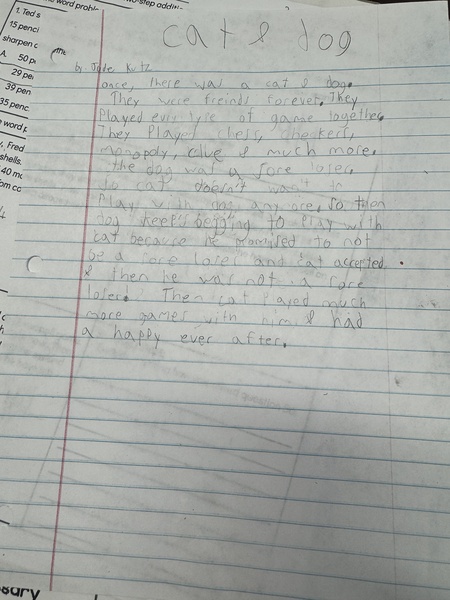 cat & dog
by: Jade Kutz
once, there was a cat & dog.
They were freinds forever. They
Played every type of game together.
They Played chess, checkers,
monopoly, clue & much more.
the dog was a sore loser.
So cat doesn't want to
Play with dog any ore, so then
dog keeps begging to Play with
cat because he promised to not
be a sore loser and cat accepted
& then he was not a sore
loser! Then cat Played much
more games with him & had
a happy ever after.
1. Ted s
15 penci
sharpen c
A. 50 p
29 pen
39 pen
35 penc
e word p
, Fred
shells.
40 mo